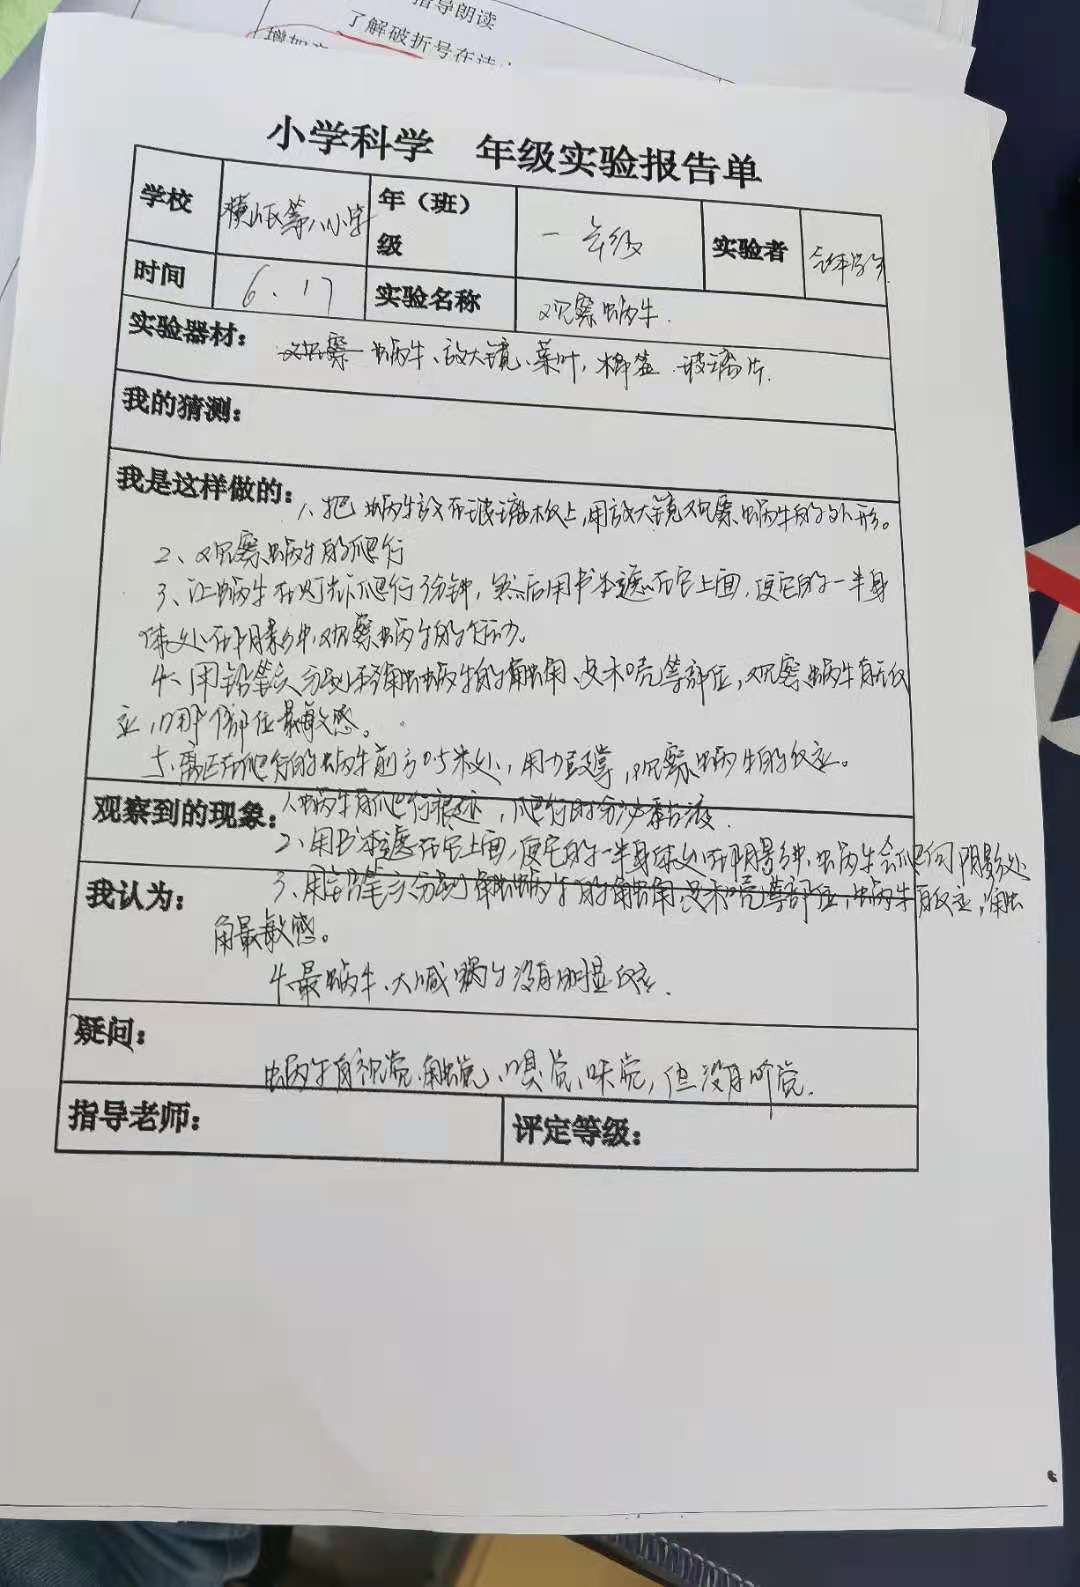 指导朗读
了解破折号在诗
增加
小学科学 年级实验报告单
学校 横山区第八小学 年（班）级 一年级 实验者 全体学生
时间 6.17 实验名称 观察蜗牛
实验器材： 蜗牛、放大镜、菜叶，棉签 玻璃片.
我的猜测：
我是这样做的：1、把蜗牛放在玻璃板上,用放大镜观察蜗牛的外形。
2、观察蜗牛的爬行
3、让蜗牛在灯光下爬行3分钟，然后用书本遮在它上面，使它的一半身
体处在阴影中,观察蜗牛的行动。
4、用铅笔尖分别轻触蜗牛的触角、足和壳等部位，观察蜗牛有无反
应，哪个部位最敏感。
5、离正在爬行的蜗牛前方0.5米处，用力鼓掌，观察蜗牛的反应。
观察到的现象：1、蜗牛爬行 ，爬行时分泌黏液.
2、用书本遮在它上面，使它的一半身体处在阴影中,蜗牛会爬向阴影处
我认为： 3、用铅笔尖分别触蜗牛的触角、足和壳等部位，蜗牛有反应，触
角最敏感。
4、 蜗牛、大喊蜗牛没有明显反应.
疑问：
蜗牛有视觉、触觉、嗅觉、味觉，但没有听觉.
指导老师： 评定等级：